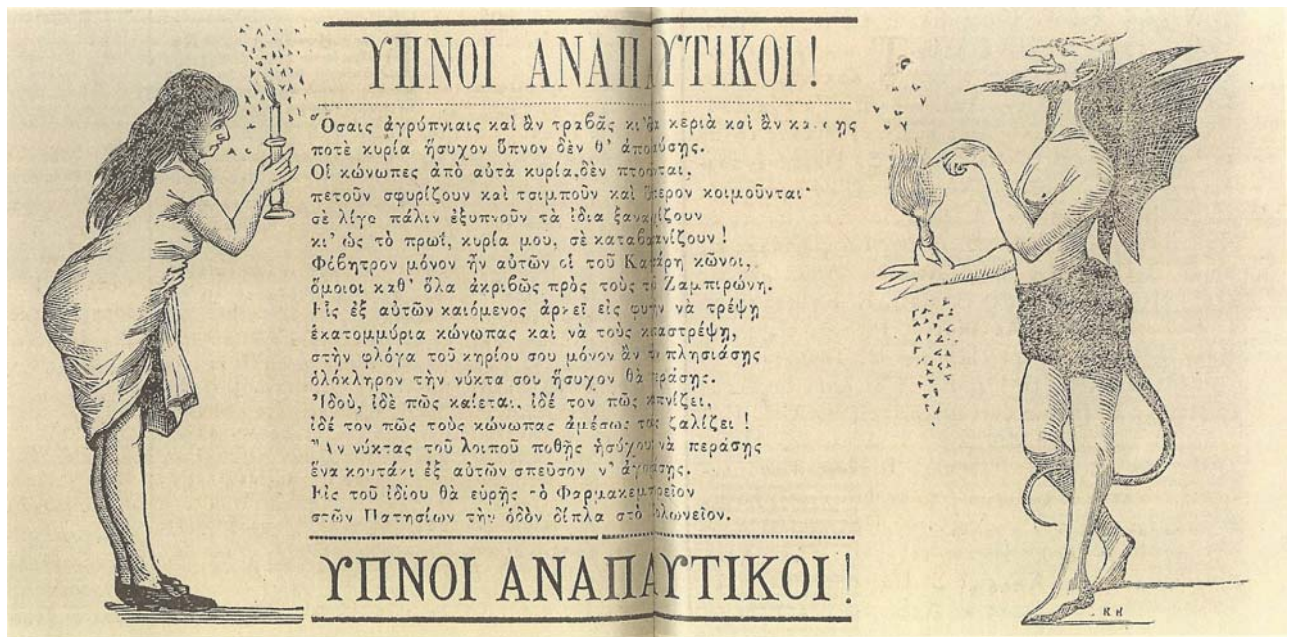 ΥΠΝΟΙ ΑΝΑΠΑΥΤΙΚΟΙ!
Ὅσαις ἀγρύπνιαις καὶ ἂν τραβᾷς κι' κεριὰ καὶ ἂν
ποτὲ κυρία ἥσυχον ὕπνον δὲν θ' ἀπολαύσῃς.
Οἱ κώνωπες ἀπὸ αὐτὰ κυρία, δὲν πτοοῦνται,
πετοῦν σφυρίζουν καὶ τσιμποῦν καὶ ὕστερον κοιμοῦνται·
σὲ λίγο πάλιν ἐξυπνοῦν τὰ ἴδια ξαναρχίζουν
κι' ὡς τὸ πρωῒ, κυρία μου, σὲ καταβασανίζουν!
Φόβητρον μόνον ἦν αὐτῶν οἱ τοῦ κῶνοι,
ὅμοιοι καθ' ὅλα ἀκριβῶς πρὸς τοὺς τοῦ Ζαμπιρώνη.
Εἷς ἐξ αὐτῶν καιόμενος ἀρκεῖ εἰς φυγὴν νὰ τρέψῃ
ἑκατομμύρια κώνωπας καὶ νὰ τοὺς καταστρέψῃ,
στὴν φλόγα τοῦ κηρίου σου μόνον ἂν πλησιάσῃς
ὁλόκληρον τὴν νύκτα σου ἥσυχον θὰ περάσῃς.
Ἰδοὺ, ἰδὲ πῶς καίεται, ἰδέ τον πῶς καπνίζει,
ἰδέ τον πῶς τοὺς κώνωπας ἀμέσως τοὺς ζαλίζει!
Ἂν νύκτας τοῦ λοιποῦ ποθῇς ἡσύχους νὰ περάσῃς
ἕνα κουτάκι ἐξ αὐτῶν σπεῦσον ν' ἀγοράσῃς.
Εἰς τοῦ ἰδίου θὰ εὑρῇς τὸ Φαρμακεμπορεῖον
στῶν Πατησίων τὴν ὁδὸν δίπλα στὸ
ΥΠΝΟΙ ΑΝΑΠΑΥΤΙΚΟΙ!